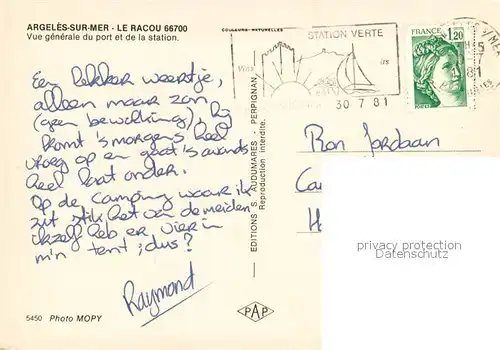 ARGELÈS-SUR-MER - LE RACOU 66700
Vue générale du port et de la station.
COULEURS NATURELLES
STATION VERTE
30 7 81
FRANCE 1,20
81
Een lekker weertje,
alleen maar zon
(geen bewolking), hij
komt 's morgens heel
vroeg op en gaat 's avonds
heel laat onder.
Op de camping waar ik
zit stikt het van de meiden
ikzelf heb er vier in
m'n tent, dus?
Raymond
EDITIONS S. AUDUMARES - PERPIGNAN.
Reproduction interdite.
Ron Jordaan
Ca
H
privacy protection
Datenschutz
5450 Photo MOPY
PAP